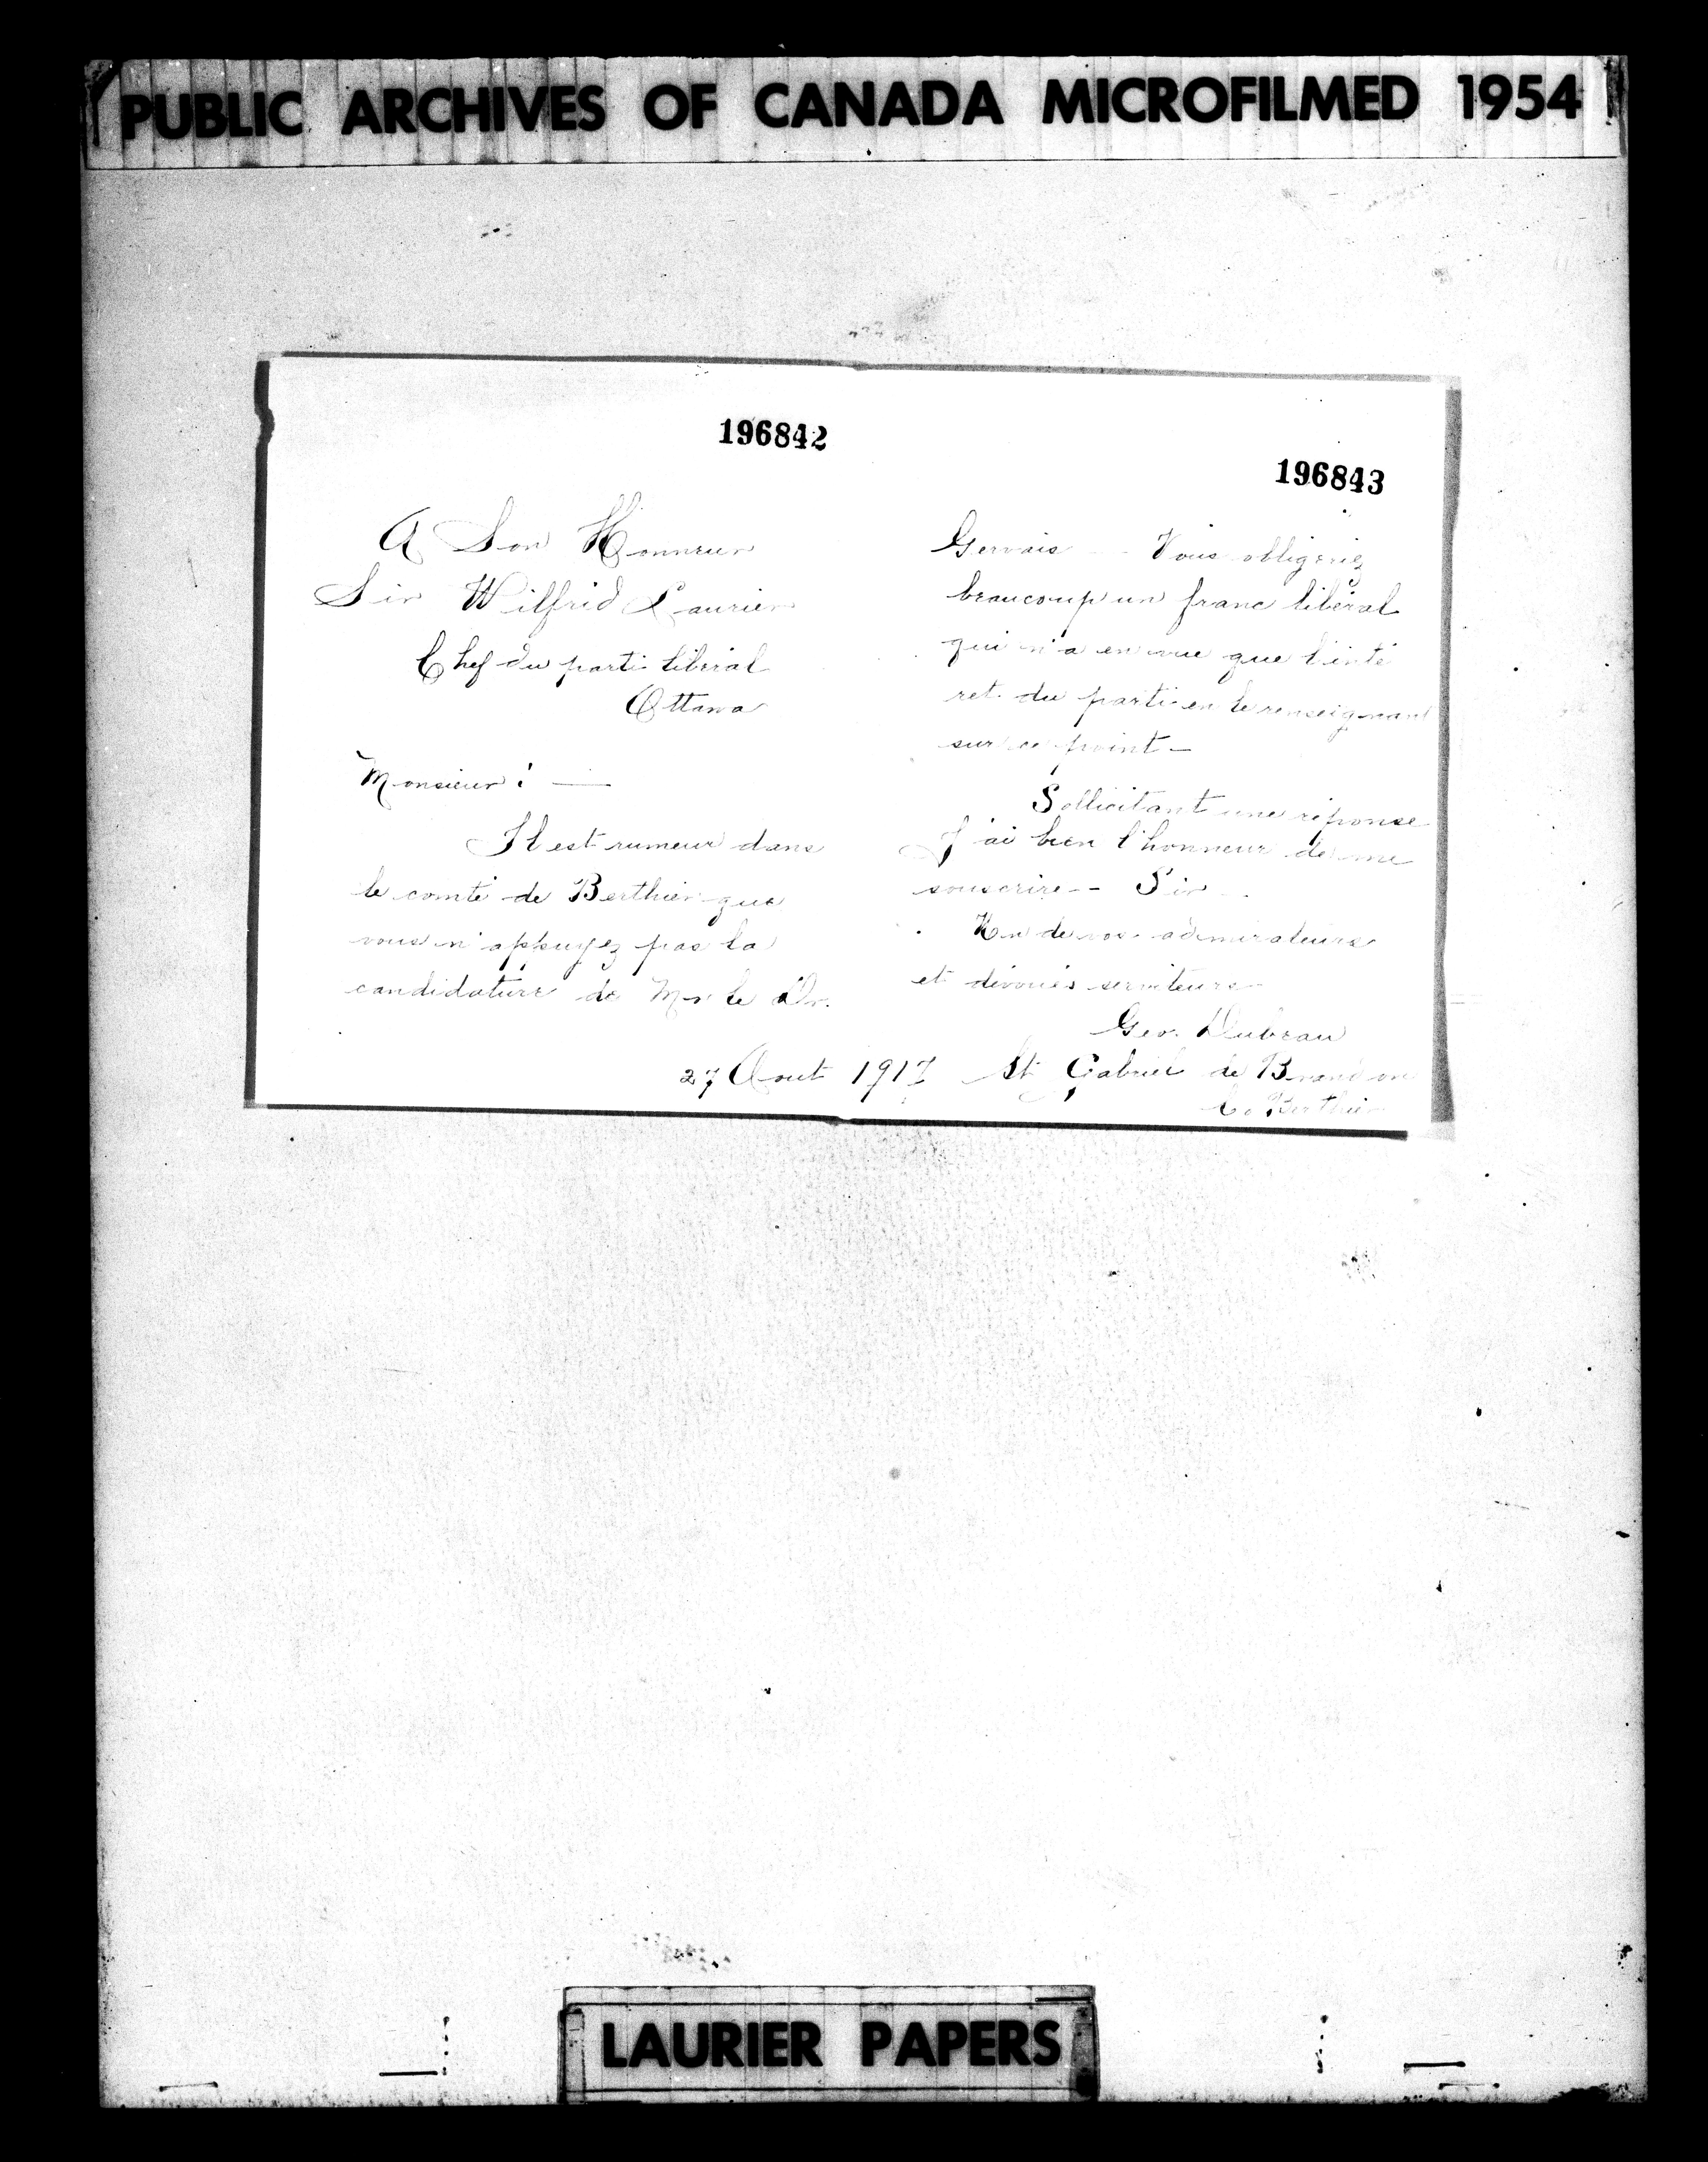 PUBLIC ARCHIVES OF CANADA MICROFILMED 1954
196842
A Son Honneur
Sir Wilfrid Laurier
Chef du parti libéral
Ottawa
Monsieur : —
Il est rumeur dans
le comté de Berthier que
vous n'appuyez pas la
candidature de Mr le Dr.
196843
Gervais -- Vous obligeriez
beaucoup un franc libéral
qui n'a en vue que l'inté
ret du parti en le renseignant
sur ce point —
Sollicitant une réponse
J'ai bien l'honneur de me
souscrire -- Sir -
Un de vos admirateurs
et dévoués serviteurs
Geo. Dubeau
27 Aout 1917 St Gabriel de Brandon
Co Berthier
LAURIER PAPERS